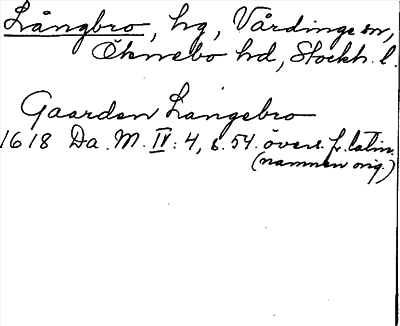 Långbro, hg, Vårdinge sn,
Öknebo hd, Stockh. l.
Gaarden Langebro
1618 Da. M. IV: 4, s. 54. övers. fr. latin.
(namnen orig.)